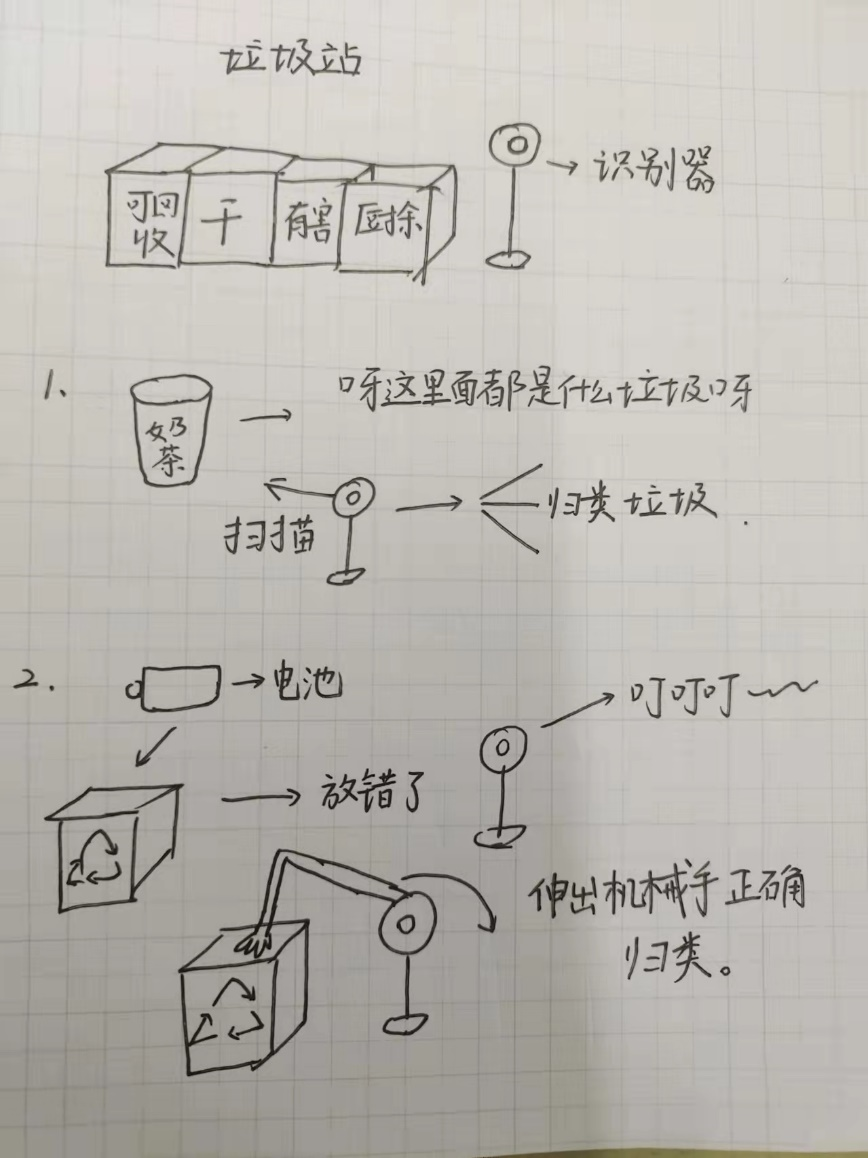 垃圾站
可回收
干
有害
→ 识别器
1、
奶茶
→ 呀这里面都是什么垃圾呀
扫描
→ 归类垃圾.
2.
→电池
→ 叮叮叮~~
→ 放错了
伸出机械手正确
归类。